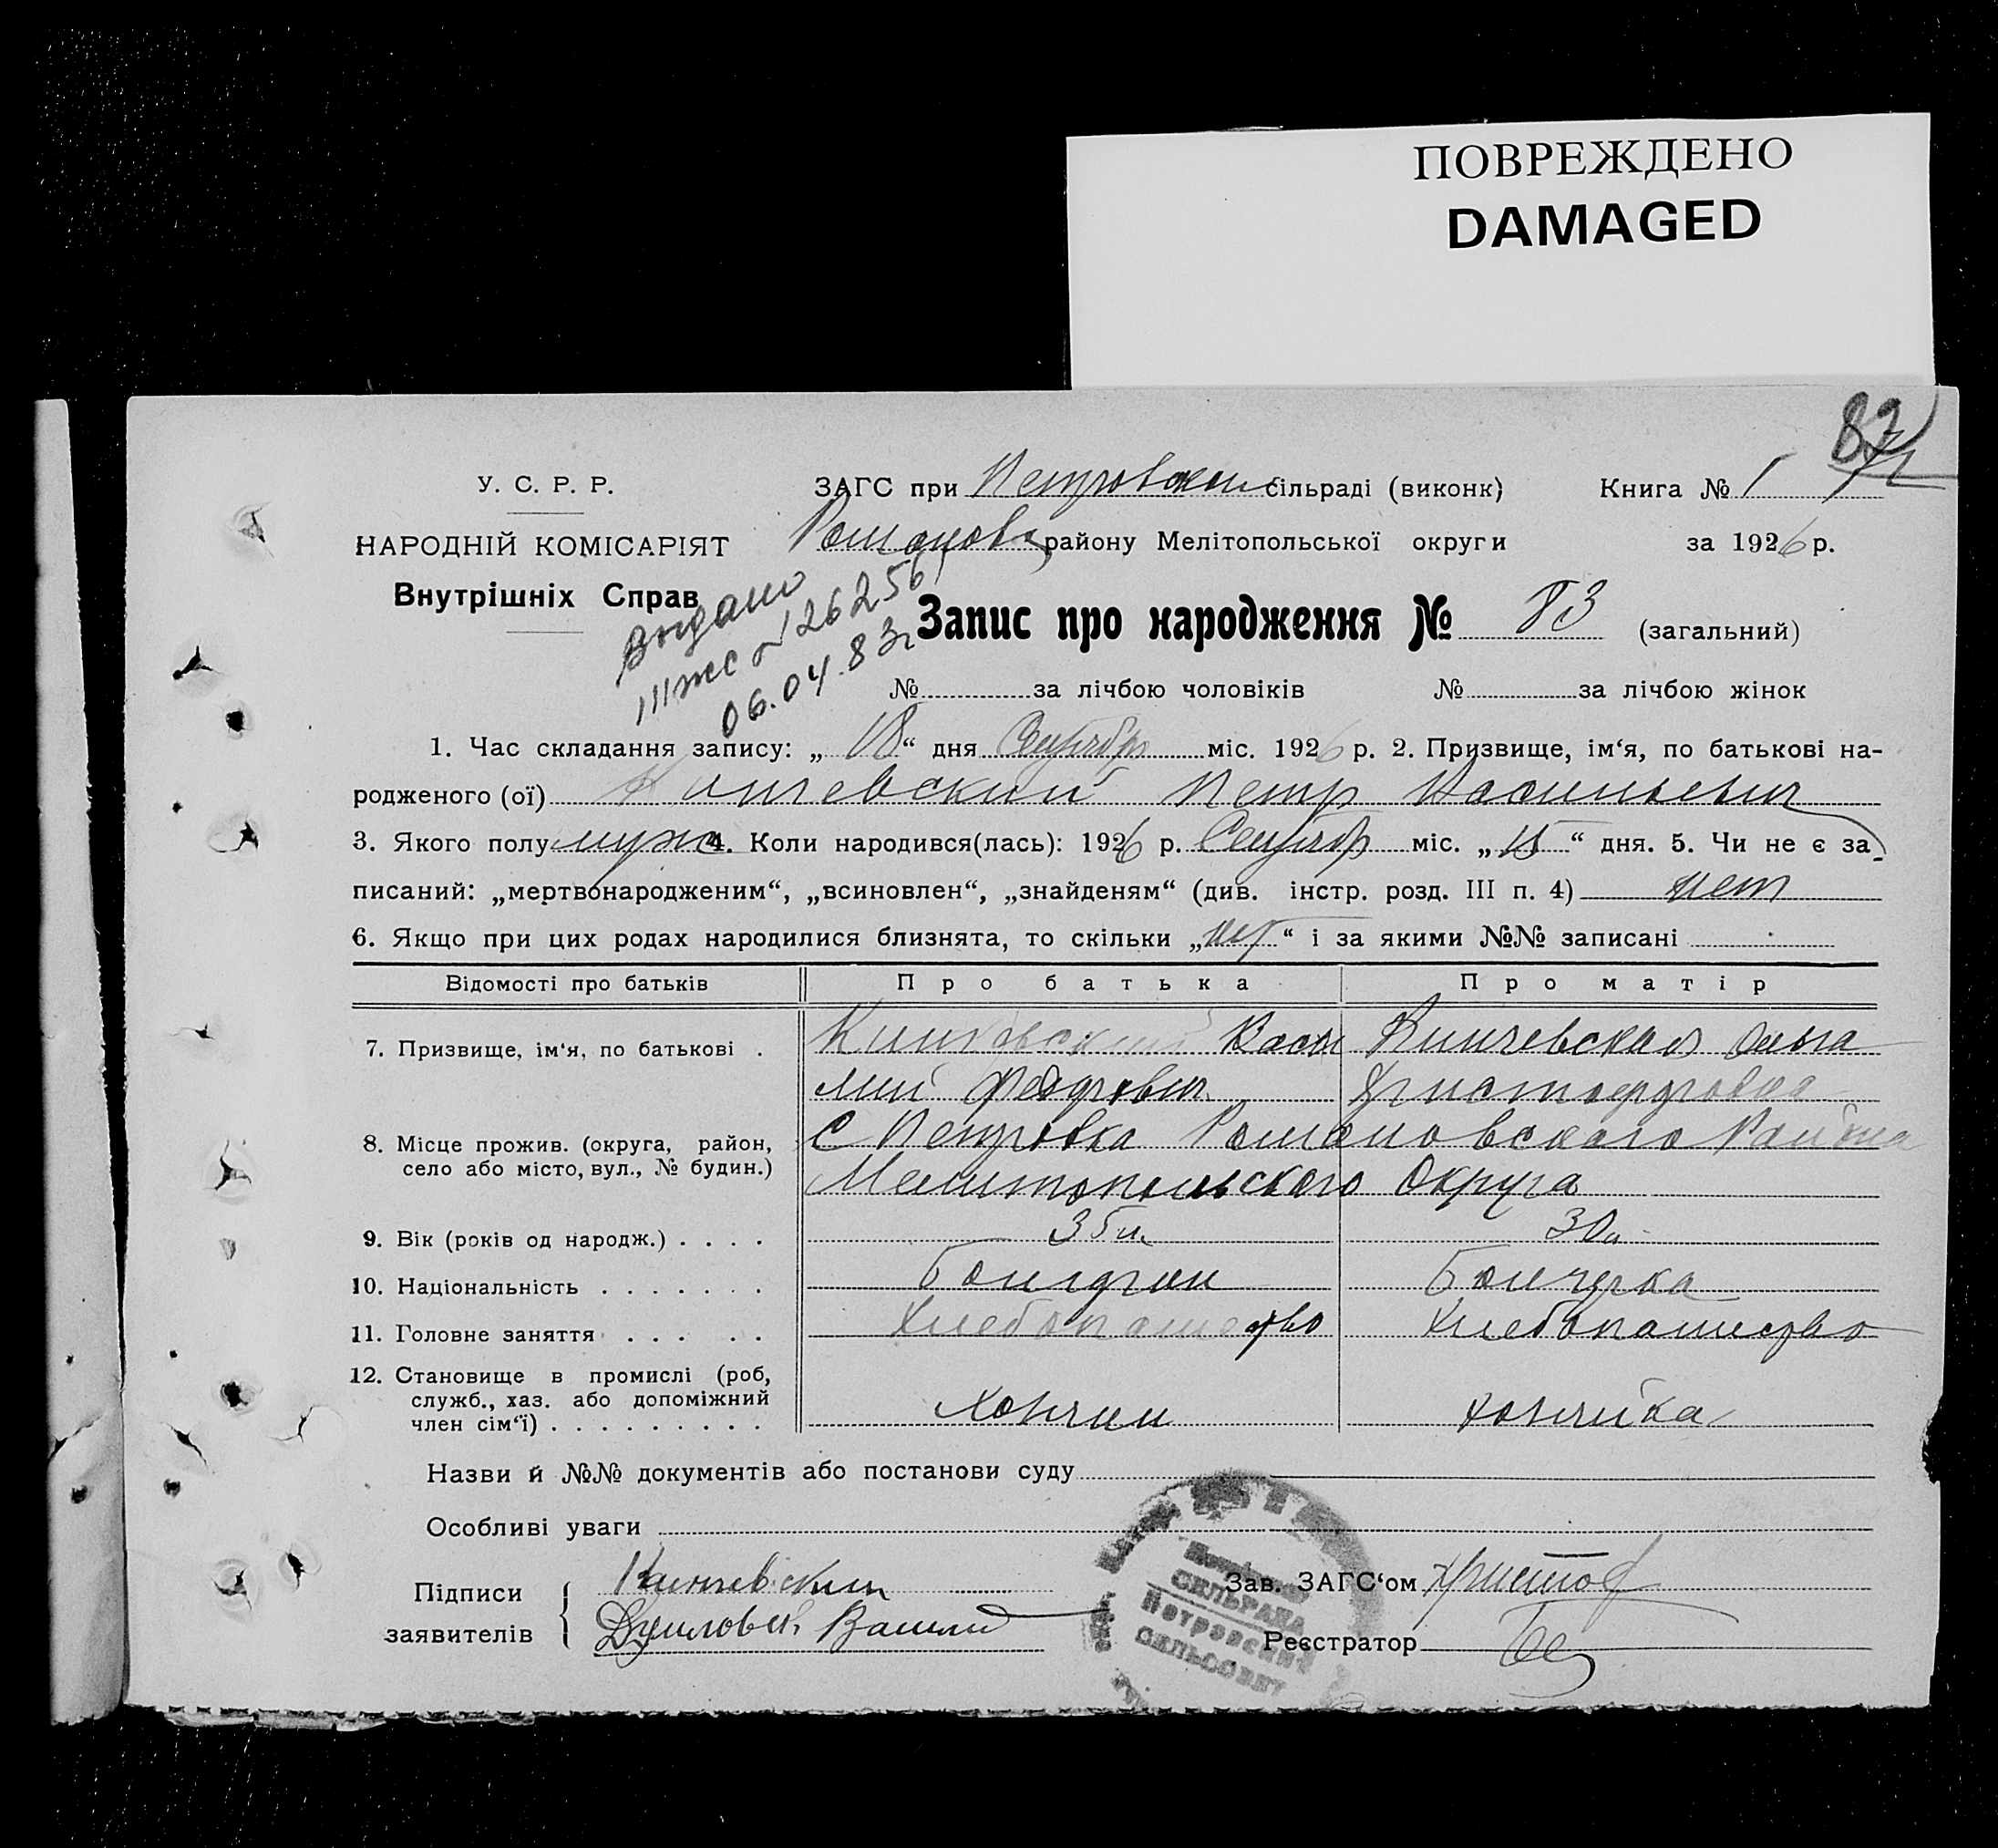 ПОВРЕЖДЕНО
DAMAGED
У. С. Р. Р.
НАРОДНІЙ КОМІСАРІЯТ
Внутрішніх Справ
ЗАГС при Петровском сільраді (виконк)
района Мелітопольської округи
Книга № 1
за 1926 р.
82
Выдано
06.04.83г
Запис про народження № 83 (загальний)
№ за лічбою чоловіків № за лічбою жінок
1. Час складання запису: „ 18 “ дня Сентябр міс. 1926 р. 2. Призвище, ім‘я, по батькові на-
родженого (ої) Кинчевский Петр Васильевич
3. Якого полу муж 4. Коли народився(лась): 1926 р. Сентябр міс. „ 15 “ дня. 5. Чи не є за-
писаний: „мертвонародженим“, „всиновлен“, „знайденям“ (див. інстр. розд. III п. 4) нет
6. Якщо при цих родах народилися близнята, то скільки „ нет “ і за якими №№ записані
Відомості про батьків Про батька Про матір
7. Призвище, ім‘я, по батькові . Кинчевский Васи Кинчевская Ольга
лий Федорович Христофоровна
8. Місце прожив. (округа, район,
село або місто, вул., № будин.)
С Петровка Романовского Района
Мелитопольского Округа
9. Вік (років од народж.) . . . . 35 л. 30 л.
10. Національність . . . . . . . Болгрин Болгарка
11. Головне заняття . . . . . Хлебопашество Хлебопашество
12. Становище в промислі (роб,
служб., хаз. або допоміжний
член сім‘ї) . . . . . . . . .
Хозяин хозяйка
Назви й №№ документів або постанови суду
Особливі уваги
Підписи
заявителів
Кинчевский
Зав. ЗАГС‘ом Христоф
Реєстратор
СІЛЬРАДА
Петровский
СЕЛЬСОВЕТ